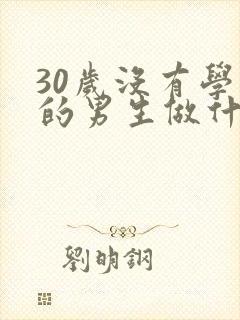 30歲沒有學
的男生做什
劉明鋼